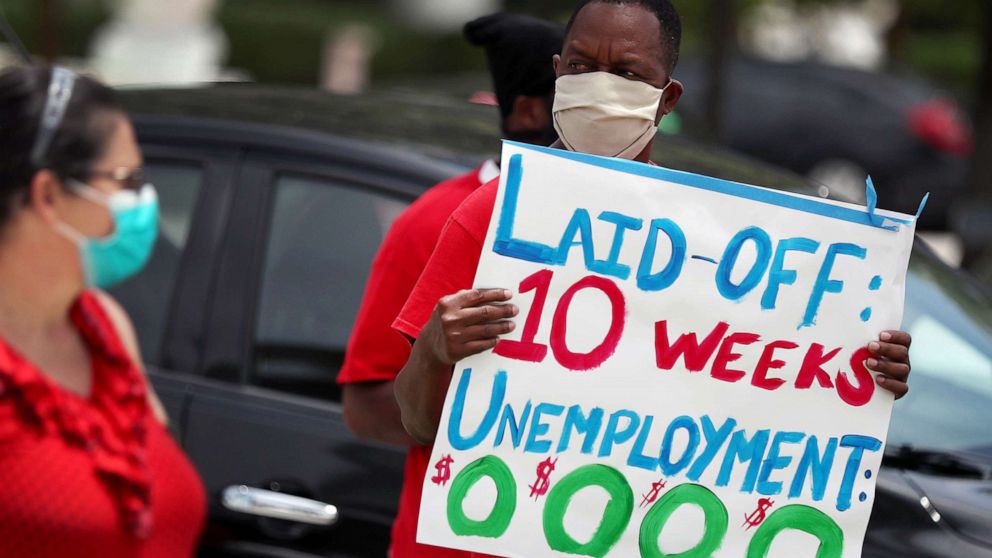 LAID-OFF:
10 WEEKS
UNEMPLOYMENT:
$0 $0 $0 $0